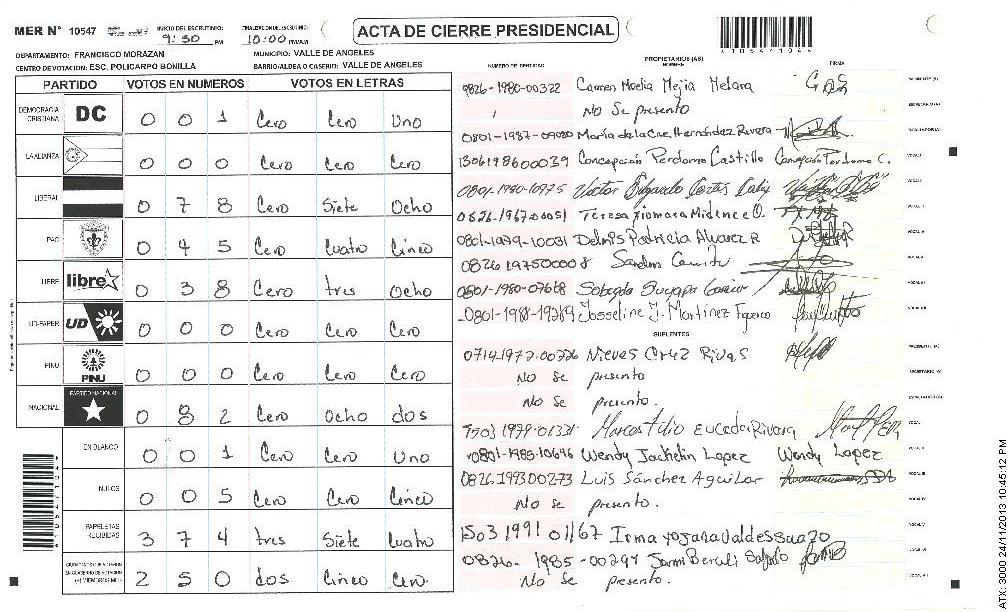 MER N° 10547
INICIO DEL ESCRUTINIO: 9:50 PM
FINALIZACION DEL ESCRUTINIO: 10:00 PM/AM
ACTA DE CIERRE PRESIDENCIAL
DEPARTAMENTO: FRANCISCO MORAZAN
MUNICIPIO: VALLE DE ANGELES
CENTRO DE VOTACION: ESC. POLICARPO BONILLA
BARRIO/ALDEA O CASERIO: VALLE DE ANGELES
PARTIDO VOTOS EN NUMEROS VOTOS EN LETRAS
DEMOCRACIA CRISTIANA DC 0 0 1 Cero Cero Uno
LA ALIANZA 0 0 0 Cero Cero Cero
LIBERAL 0 7 8 Cero Siete Ocho
PAC 0 4 5 Cero Cuatro Cinco
LIBRE libre 0 3 8 Cero tres Ocho
UD-FAPER UD 0 0 0 Cero Cero Cero
PINU PINU 0 0 0 Cero Cero Cero
NACIONAL PARTIDO NACIONAL 0 8 2 Cero Ocho dos
EN BLANCO 0 0 1 Cero Cero Uno
NULOS 0 0 5 Cero Cero Cinco
PAPELETAS RECIBIDAS 3 7 4 tres Siete Cuatro
CIUDADANOS QUE VOTARON EN CUADERNO DE VOTACION (+) MIEMBROS MER 2 5 0 dos Cinco Cero
PROPIETARIOS (AS)
NUMERO DE IDENTIDAD NOMBRE FIRMA
0826-1980-00322 Carmen Noelia Mejia Melara PRESIDENTE (A)
No Se presento SECRETARIO (A)
María de la Cruz Hernández Rivera
1306198600039 Concepción Perdomo Castillo Concepción Perdomo C. VOCAL I
0801-1980-10975 Victor Edgardo
0826-1967-00051 Teresa Xiomara Midence O.
0801-1979-10031 Delmis Patricia Alvarez R
0826 197500008 Sandra
0801-1980-07668
0801-1988-19269 Josseline J. Martinez Figueroa
SUPLENTES
0714-1977-00226 Nieves Cruz Rivas PRESIDENTE (A)
No Se presento SECRETARIO (A)
No Se presento.
1503 1979-01331 Marcos Tulio Euceda Rivera
0801-1985-10646 Wendy Jackelin Lopez Wendy Lopez
0826 1993 00273 Luis Sánchez Aguilar
No Se presento.
1503 1991 01167 Irma Yojana Valdes
0826-1985-00297
No Se presento.
ATX: 3000 24/11/2013 10:45:12 PM